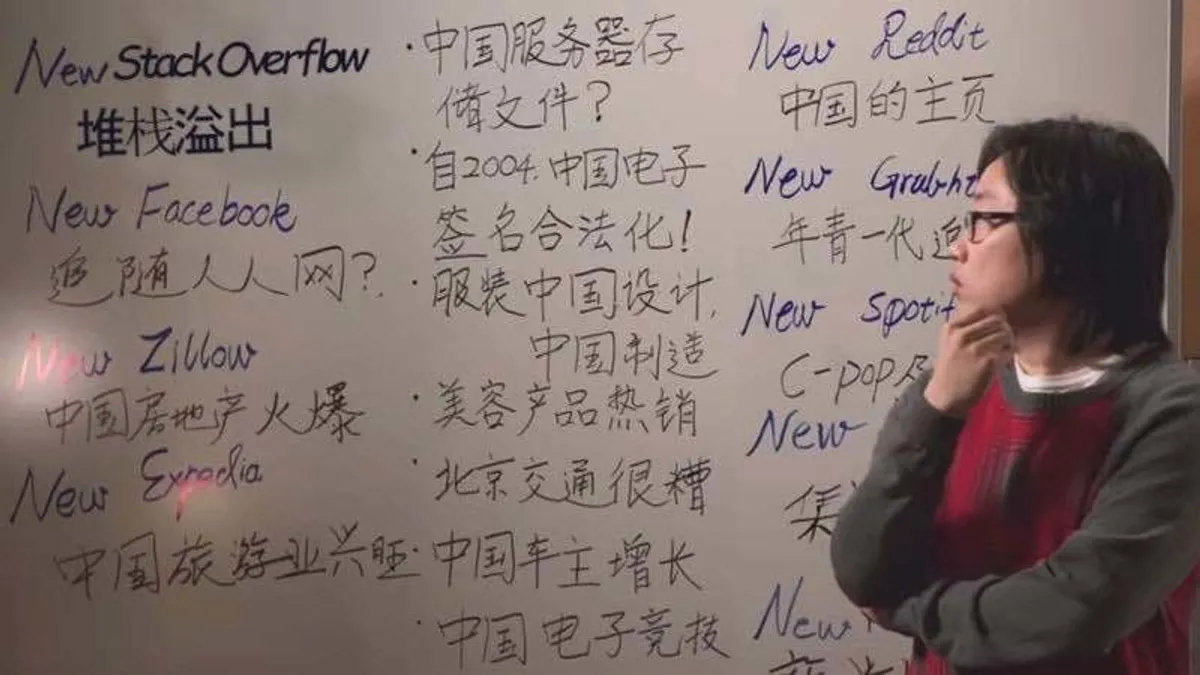 New Stack Overflow
堆栈溢出
New Facebook
追随人人网?
New Zillow
中国房地产火爆
New Expedia
中国旅游业兴旺
·中国服务器存
储文件?
·自2004.中国电子
签名合法化!
·服装中国设计,
中国制造
·美容产品热销
·北京交通很糟
·中国车主增长
·中国电子竞技
New Reddit
中国的主页
New
年青一代追
New
C-pop
New
New